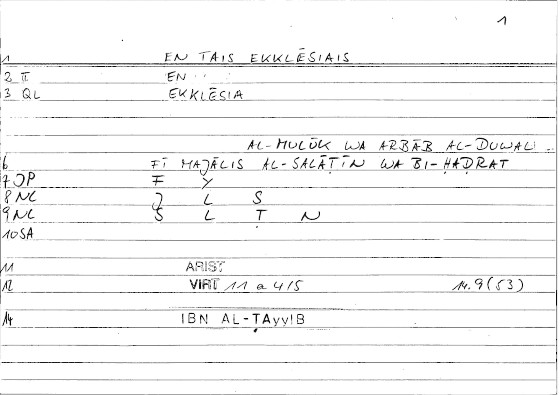 1
1 EN TAIS EKKLĒSIAIS
2 II EN
3 QL EKKLĒSIA
AL-MULŪK WA ARBĀB AL-DUWALI
6 FĪ MAJĀLIS AL-SALĀṬĪN WA BI-ḤAḌRAT
7 OP F Y
8 NL J L S
9 NL S L Ṭ N
10 SA
11 ARIST
12 VIRT 11 a 4/5 14.9(53)
14 IBN AL-ṬAyyIB